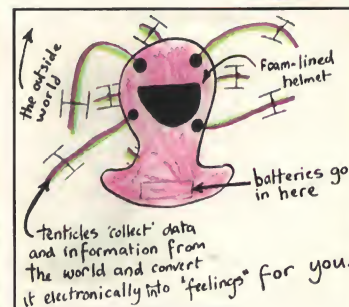 the outside
world
Foam-lined
helmet
batteries go
in here
tenticles 'collect' data
and information from
the world and convert
it electronically into "feelings" for you.